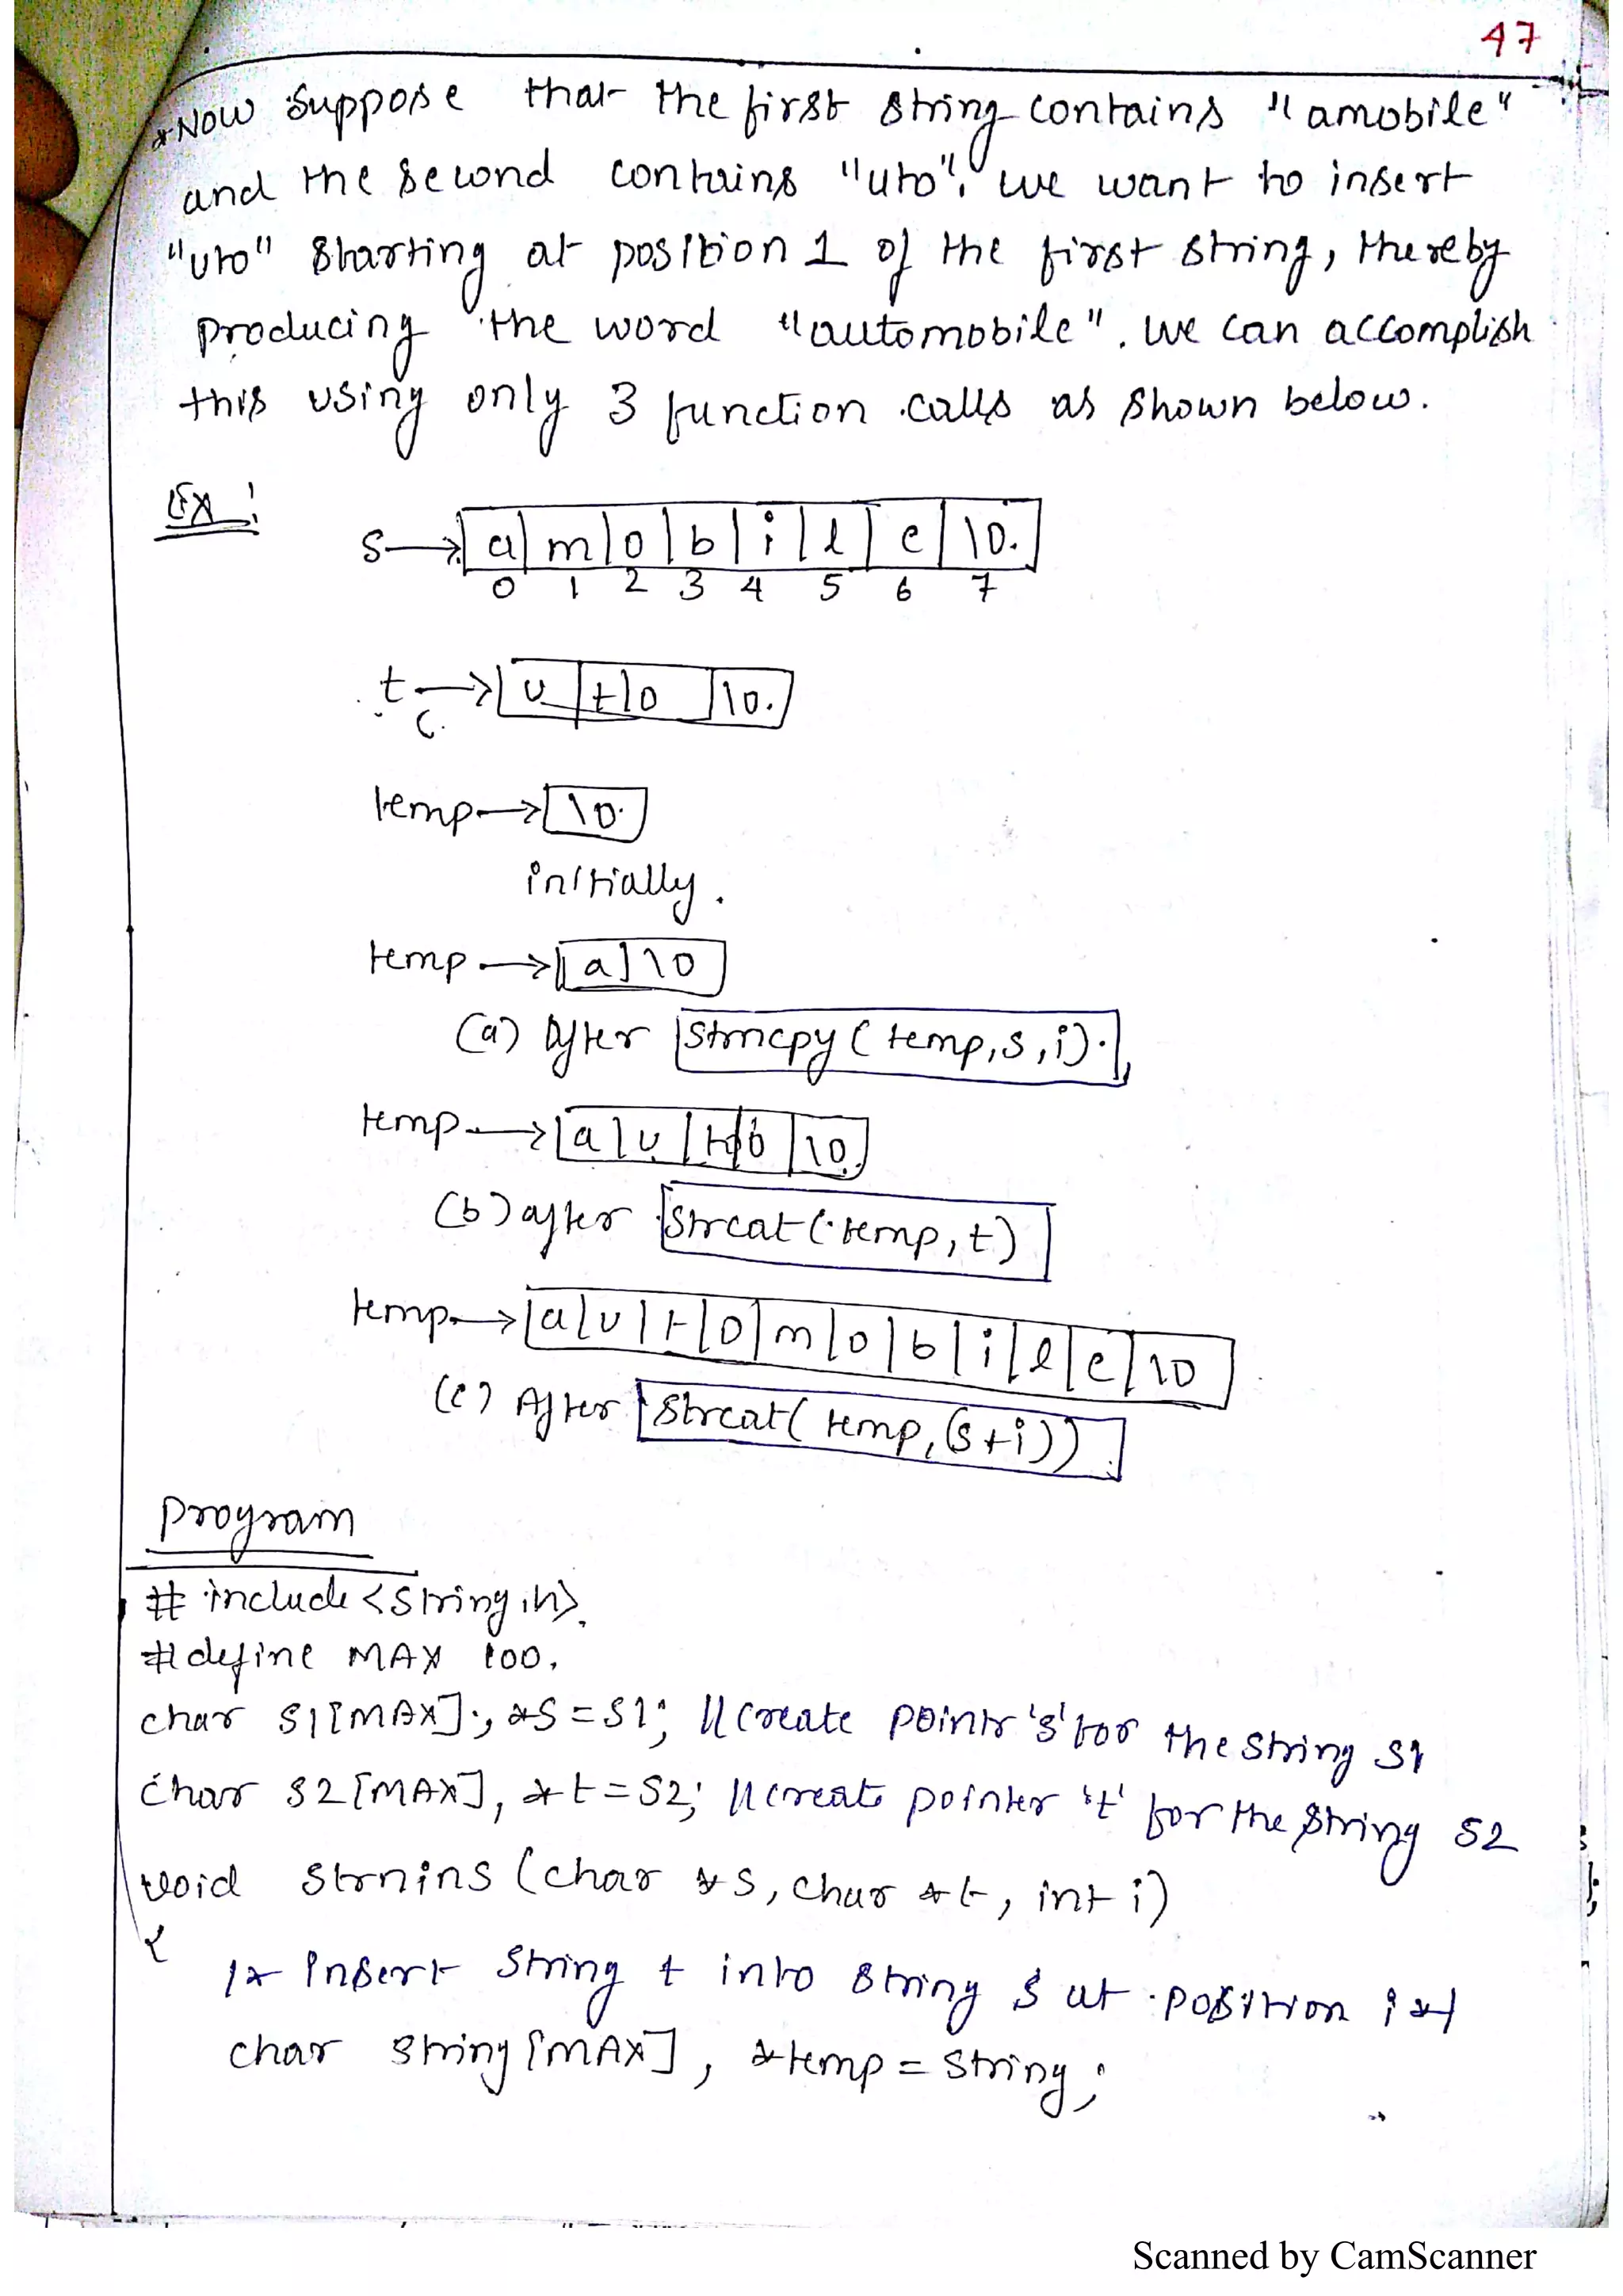 47
*Now suppose that the first string contains "amobile"
and the second contains "uto". we want to insert
"uto" starting at position 1 of the first string, thereby
producing the word "automobile". we can accomplish
this using only 3 function calls as shown below.
Ex:
s→ a m o b i l e \0
0 1 2 3 4 5 6 7
t→ u t o \0
temp→ \0
initially.
temp→ a \0
(a) After strncpy(temp,s,i).
temp→ a u t o \0
(b) after strcat(temp,t)
temp→ a u t o m o b i l e \0
(c) After strcat(temp,(s+i))
Program
#include<string.h>
#define MAX 100.
char s1[MAX], *s=s1; //Create pointr 's' for the string s1
char s2[MAX], *t=s2; //create pointer 't' for the string s2
void strnins (char *s, char *t, int i)
{
/* Insert string t into string s at position i */
char string[MAX], *temp = string;
Scanned by CamScanner